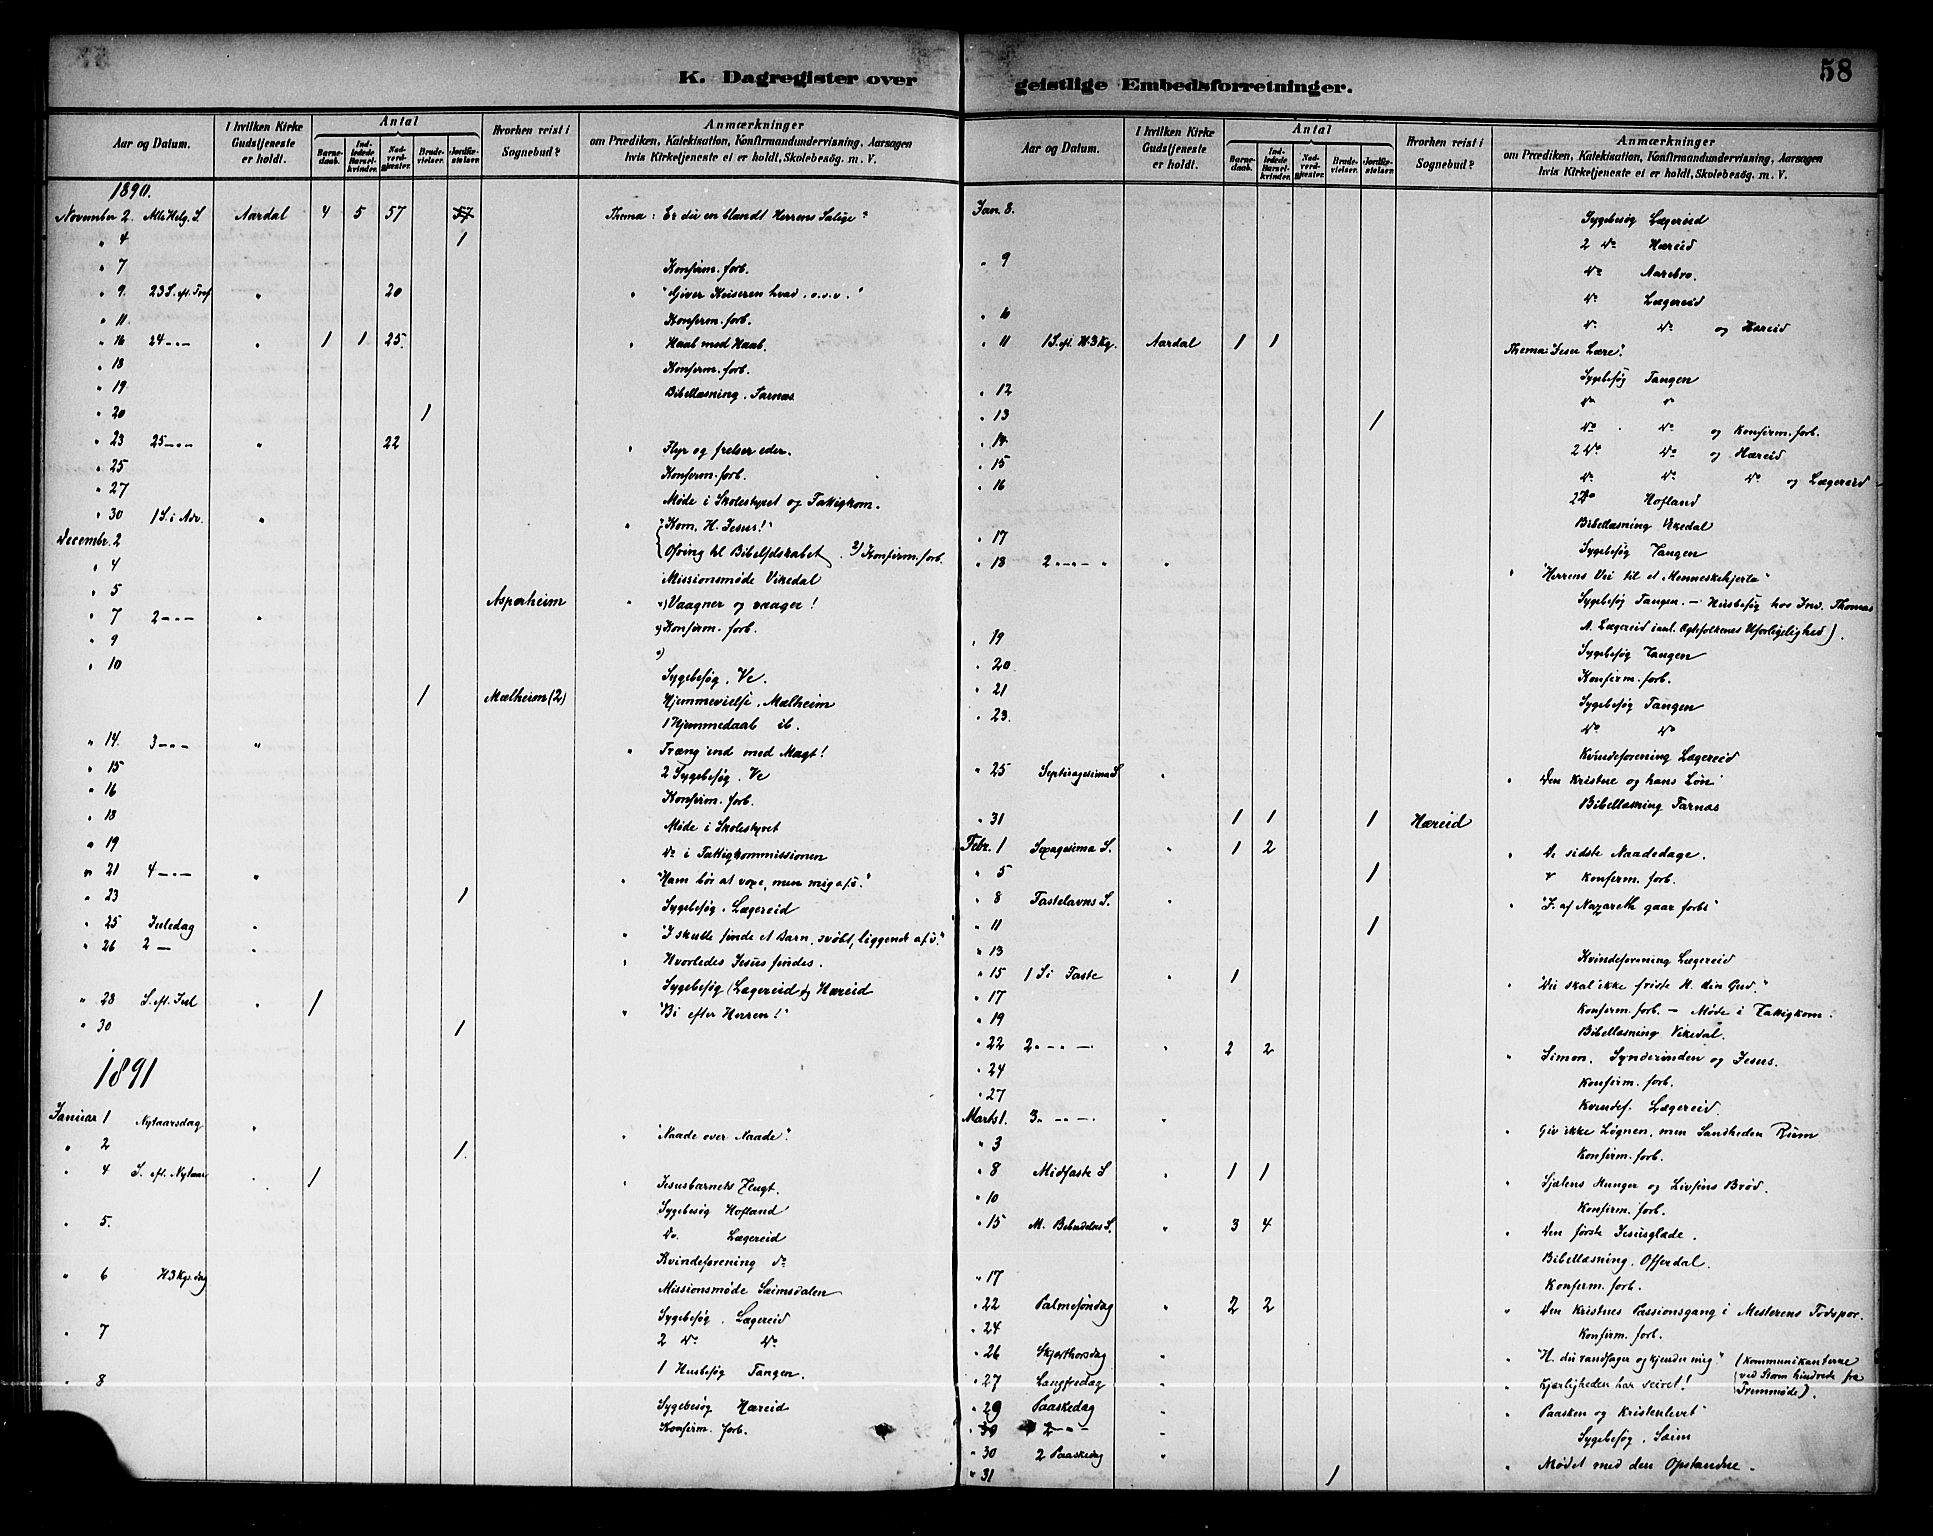 K. Dagregister over
Aar og Datum. I hvilken Kirke Gudstjeneste er holdt. Antal Barne-daab. Ind-ledede Barsel-kvinder. Nad-verd-gjæster. Brude-vielser. Jordfæ-stelser. Hvorhen reist i Sognebud? Anmærkninger om Prædiken, Katekisation, Konfirmandundervisning, Aarsagen hvis Kirketjeneste ei er holdt, Skolebesøg. m. V.
1890.
November 2. Alle Helg. S Aardal 4 5 57 Thema: Er du en blandt Herrens Salige?
" 4 1
" 7 Konfirm. forb.
" 9. 23 S. eft. Tref " 20 " "Giver Keiseren hvad . o.s.v."
" 11. Konfirm. forb.
" 16 24 - " - " 1 1 25. " Haab mod Haab.
" 18 Konfirm. forb.
" 19. Bibellæsning. Farnæs
" 20 1
" 23 25 - " - " 22 " Flyr og frelser eder.
" 25 Konfirm. forb.
" 27 Møde i Skolestyret og Fattigkom.
" 30 1 S. i Adv. " " Kom, H. Jesus!"
Decembr. 2 Ofring til Bibelselskabet. 2) Konfirm. forb.
" 4 Missionsmøde Vikedal
" 5 Asperheim
" 7 2 - " - " " Vaagner og vaager!
" 9 Konfirm. forb.
" 10 Sygebesøg. Ve.
1 Mælheim (2) Hjemmevielse. Mælheim
1 Hjemmedaab ib.
" 14. 3 - " - " " Træng ind med Magt!
" 15 2 Sygebesøg. Ve
" 16 Konfirm. forb.
" 18 Møde i Skolestyret
" 19 Do i Fattigkommissionen
" 21 4 - " - " " "Ham bør at voxe, men mig o.s.v."
" 23 1 Sygebesøg. Lægereid
" 25 Juledag " " "I skulle finde et Barn, svøbt, liggende o.s.v."
" 26 2 - " " Hvorledes Jesus findes.
Sygebesøg (Lægereid og Hæreid
" 28 S. eft. Jul " 1 " "Bi efter Herren!"
" 30 1
1891
Januar 1 Nytaarsdag " " "Naade over Naade".
" 2 1.
" 4 S. eft. Nytaar " 1 " Jesusbarnets Flugt.
Sygebesøg Hofland
" 5. Do. Lægereid
Kvindeforening do
" 6 H3Kgs. dag Missionsmøde Seimsdalen
Sygebesøg. Lægereid
" 7 2 Do Do
1 Husbesøg Tangen.
" 8 Sygebesøg Hæreid
Konfirm. forb.
geistlige Embedsforretninger.
58
Aar og Datum. I hvilken Kirke Gudstjeneste er holdt. Antal Barne-daab. Ind-ledede Barsel-kvinder. Nad-verd-gjæster. Brude-vielser. Jordfæ-stelser Hvorhen reist i Sognebud? Anmærkninger om Prædiken, Katekisation, Konfirmandundervisning, Aarsagen hvis Kirketjeneste ei er holdt, Skolebesøg. m. V.
Jan. 8. Sygebesøg Lægereid
2 Do Hæreid
" 9 Do Aarebro.
Do Lægereid
" 6 Do Do og Hæreid
" 11 1 S. eft. H.3Kg. Aardal 1 1 Thema: Jesu Lære.
Sygebesøg Tangen
" 12 Do
" 13 1 Do Do og Konfirm. forb.
" 14 2 Do Do og Hæreid
" 15 Do Do Do og Lægereid
" 16 2 Do Hofland
Bibellæsning Vikedal
" 17 Sygebesøg Tangen
" 18 2 - " - " " " "Herrens Vei til et Menneskehjerte"
Sygebesøg Tangen. — Husbesøg hos Inv. Thomas
A. Lægereid . Uforligelighed).
" 19 Sygebesøg Tangen
" 20. Konfirm. forb.
" 21 Sygebesøg Tangen
" 23. Do Do
Kvindeforening Lægereid
" 25 Septuagesima S. " " Den Kristne og hans Løn
Bibellæsning Farnæs
" 31 1 1 1 Hæreid
Febr. 1 Sexagesima S. " 1 2 " De sidste Naadedage.
" 5 1 Konfirm. forb.
" 8 Fastelavns S. " " "J. af Nazareth gaar forbi"
" 11 1
" 13 Kvindeforening Lægereid
" 15 1 S i Faste " 1 " "Du skal ikke friste H. din Gud."
" 17 Konfirm. forb. — Møde i Fattigkom.
" 19 Bibellæsning Vikedal.
" 22 2 - " - " - " 2 2 " Simon, Synderinden og Jesus.
" 24 Konfirm. forb.
" 27 Kvindef. Lægereid.
Marts 1. 3 " - " - " " Giv ikke Løgnen, men Sandheden Rum
" 3 Konfirm. forb.
" 8 Midfaste S " 1 1 " Sjælens Hunger og Livsens Brød.
" 10 Konfirm. forb.
" 15 M. Bebudelses S. " 3 4 " Den første Jesusglæde.
Bibellæsning. Offerdal.
" 17 Konfirm. forb.
" 22 Palmesøndag " 2 2 " Den Kristnes Passionsgang i Mesterens Fodspor.
" 24 Konfirm. forb.
" 26 Skjærthorsdag " "H. du randsager og kjender mig" (Kommunikanterne
" 27 Langfredag " " Kjærligheden har seiret! ved Storm hindrede fra Fremmøde).
" 29 Paaskedag " " Paasken og Kristenlivet
" 30 2 - " - " Sygebesøg. Seim
" 30 2 Paaskedag " " Mødet med den Opstandne.
" 31 1